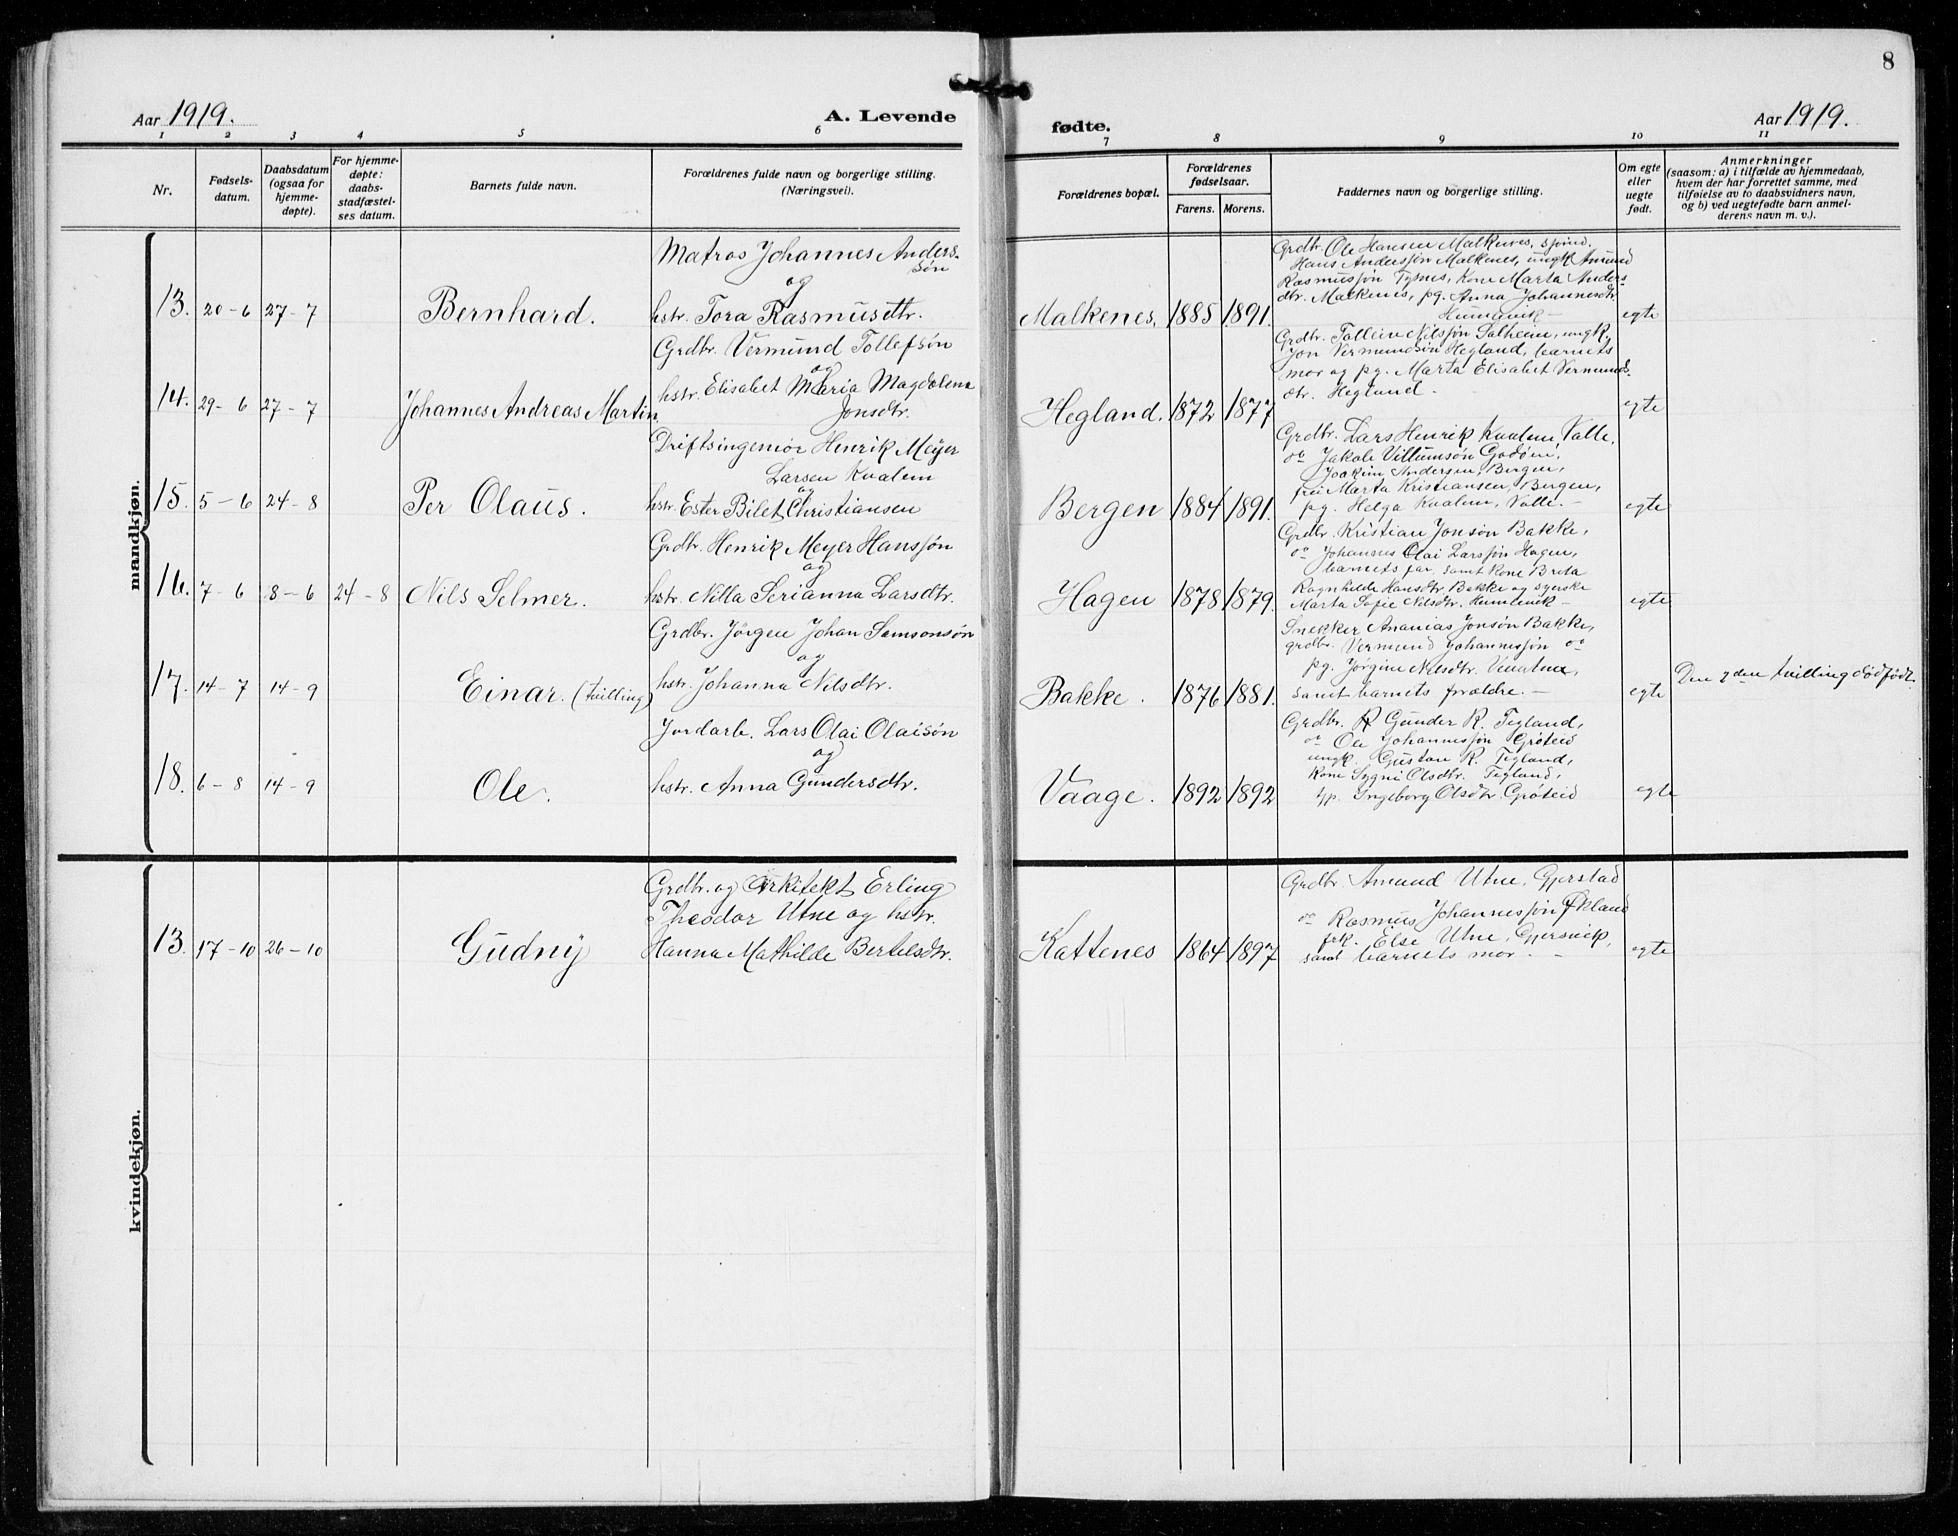 8
Aar 1919.
A. Levende
1 2 3 4 5 6
Nr.
Fødsels-
datum.
Daabsdatum
(ogsaa for
hjemme-
døpte).
For hjemme-
døpte:
daabs-
stadfæstel-
ses datum.
Barnets fulde navn.
Forældrenes fulde navn og borgerlige stilling.
(Næringsvei).
mandkjøn.
Matros Johannes Anders-
søn
og
13. 20-6 27-7 Bernhard. hstr. Tora Rasmusdtr.
Grdbr. Vermund Tollefsøn
og
14. 29-6 27-7 Johannes Andreas Martin. hstr. Elisabet Maria Magdalena
Jonsdtr.
Driftsingeniør Henrik Meyer
Larsen Kvalem
og
15. 5-6 24-8 Per Olaus. hstr. Ester Bilet Christiansen
Grdbr. Henrik Meyer Hanssøn
og
16. 7-6 8-6 24-8 Nils Selmer. hstr. Nilla Serianna Larsdtr.
Grdbr. Jørgen Johan Samsonsøn
og
17. 14-7 14-9 Einar. (tvilling) hstr. Johanna Nilsdtr.
Jordarb. Lars Olai Olaisøn
og
18. 6-8 14-9 Ole. hstr. Anna Gundersdtr.
kvindekjøn.
Grdbr. og Arkitekt Erling
Theodor Utne og hstr.
13. 17-10 26-10 Gudny Hanna Mathilde Bertelsdtr.
fødte.
Aar 1919.
7 8 9 10 11
Forældrenes bopæl.
Forældrenes
fødselsaar.
Farens. Morens.
Faddernes navn og borgerlige stilling.
Om egte
eller
uegte
født.
Anmerkninger
(saasom: a) i tilfælde av hjemmedaab,
hvem der har forrettet samme, med
tilføielse av to daabsvidners navn,
og b) ved uegtefødte barn anmel-
derens navn m. v.).
Grdbr. Ole Hansen Malkenes,
Hans Anderssøn Malkenes, ungk. Amund
Rasmussøn Tysnes, Kone Marta Anders-
dtr. Malkenes, pg. Anna Johannesdtr.
Malkenes. 1885 1891. egte
Grdbr. Tollein Nilssøn Salheim, ungk.
Jon Vermundsøn Hegland, barnets
mor og pg. Marta Elisabet Vermunds-
dtr. Hegland.
Hegland. 1872 1877 egte
Grdbr. Lars Henrik Kvalem, Valle,
Jakob Villumsøn
Joakim Andersen, Bergen,
Marta Kristiansen, Bergen,
pg. Helga Kvalem, Valle.
Bergen 1884 1891. egte
Grdbr. Kristian Jonsøn Bakke,
Johannes Olai Larssøn Hagen,
barnets far, samt Kone Brita
Ragnhilde Hansdtr. Bakke og
Marta Sofie Nilsdtr.
Hagen 1878 1879. egte
Snekker Ananias Jonsøn Bakke,
grdbr. Vermund Johannessøn
pg. Jørgine Nilsdtr.
samt barnets forældre.
Bakke. 1876 1881. egte Den 2den tvilling dødfødt.
Grdbr. Gunder R. Tegland,
Ole Johannessøn Grøteid
ungk. Gustav R. Tegland,
Kone Sygni Olsdtr. Tegland,
Ingeborg Olsdtr. Grøteid
Vaage. 1892 1892 egte
Grdbr. Amund Utne, Gjerstad
Rasmus Johannessøn Økland
frk. Else Utne, Gjersvik,
samt barnets mor.
Kattenes 1864 1897 egte